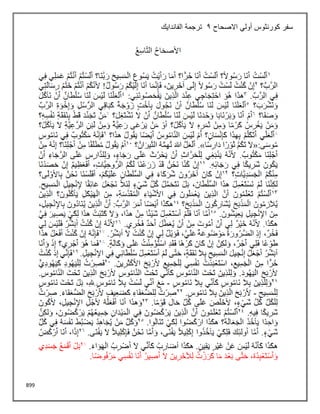 سفر كورنثوس أولي الاصحاح ٩ ترجمة الفاندايك
اَلأَصْحَاحُ التَّاسِعُ
١أَلَسْتُ أَنَا رَسُولاً؟ أَلَسْتُ أَنَا حُرًّا؟ أَمَا رَأَيْتُ يَسُوعَ الْمَسِيحَ رَبَّنَا؟ أَلَسْتُمْ أَنْتُمْ عَمَلِي فِي
الرَّبِّ؟ ٢إِنْ كُنْتُ لَسْتُ رَسُولاً إِلَى آخَرِينَ، فَإِنَّمَا أَنَا إِلَيْكُمْ رَسُولٌ! لأَنَّكُمْ أَنْتُمْ خَتْمُ رِسَالَتِي
فِي الرَّبِّ. ٣هذَا هُوَ احْتِجَاجِي عِنْدَ الَّذِينَ يَفْحَصُونَنِي: ٤أَلَعَلَّنَا لَيْسَ لَنَا سُلْطَانٌ أَنْ نَأْكُلَ
وَنَشْرَبَ؟ ٥أَلَعَلَّنَا لَيْسَ لَنَا سُلْطَانٌ أَنْ نَجُولَ بِأُخْتٍ زَوْجَةً كَبَاقِي الرُّسُلِ وَإِخْوَةِ الرَّبِّ
وَصَفَا؟ ٦أَمْ أَنَا وَبَرْنَابَا وَحْدَنَا لَيْسَ لَنَا سُلْطَانٌ أَنْ لاَ نَشْتَغِلَ؟ ٧مَنْ تَجَنَّدَ قَطُّ بِنَفَقَةِ نَفْسِهِ؟
وَمَنْ يَغْرِسُ كَرْمًا وَمِنْ ثَمَرِهِ لاَ يَأْكُلُ؟ أَوْ مَنْ يَرْعَى رَعِيَّةً وَمِنْ لَبَنِ الرَّعِيَّةِ لاَ يَأْكُلُ؟
٨أَلَعَلِّي أَتَكَلَّمُ بِهذَا كَإِنْسَانٍ؟ أَمْ لَيْسَ النَّامُوسُ أَيْضًا يَقُولُ هذَا؟ ٩فَإِنَّهُ مَكْتُوبٌ فِي نَامُوسِ
مُوسَى:«لاَ تَكُمَّ ثَوْرًا دَارِسًا». أَلَعَلَّ اللهَ تُهِمُّهُ الثِّيرَانُ؟ ١٠أَمْ يَقُولُ مُطْلَقًا مِنْ أَجْلِنَا؟ إِنَّهُ مِنْ
أَجْلِنَا مَكْتُوبٌ. لأَنَّهُ يَنْبَغِي لِلْحَرَّاثِ أَنْ يَحْرُثَ عَلَى رَجَاءٍ، وَلِلدَّارِسِ عَلَى الرَّجَاءِ أَنْ
يَكُونَ شَرِيكًا فِي رَجَائِهِ. ١١إِنْ كُنَّا نَحْنُ قَدْ زَرَعْنَا لَكُمُ الرُّوحِيَّاتِ، أَفَعَظِيمٌ إِنْ حَصَدْنَا
مِنْكُمُ الْجَسَدِيَّاتِ؟ ١٢إِنْ كَانَ آخَرُونَ شُرَكَاءَ فِي السُّلْطَانِ عَلَيْكُمْ، أَفَلَسْنَا نَحْنُ بِالأَوْلَى؟
لكِنَّنَا لَمْ نَسْتَعْمِلْ هذَا السُّلْطَانَ، بَلْ نَتَحَمَّلُ كُلَّ شَيْءٍ لِئَلاَّ نَجْعَلَ عَائِقًا لإِنْجِيلِ الْمَسِيحِ.
١٣أَلَسْتُمْ تَعْلَمُونَ أَنَّ الَّذِينَ يَعْمَلُونَ فِي الأَشْيَاءِ الْمُقَدَّسَةِ، مِنَ الْهَيْكَلِ يَأْكُلُونَ؟ الَّذِينَ
يُلاَزِمُونَ الْمَذْبَحَ يُشَارِكُونَ الْمَذْبَحَ؟ ١٤هكَذَا أَيْضًا أَمَرَ الرَّبُّ: أَنَّ الَّذِينَ يُنَادُونَ بِالإِنْجِيلِ،
مِنَ الإِنْجِيلِ يَعِيشُونَ. ١٥أَمَّا أَنَا فَلَمْ أَسْتَعْمِلْ شَيْئًا مِنْ هذَا، وَلاَ كَتَبْتُ هذَا لِكَيْ يَصِيرَ فِيَّ
هكَذَا. لأَنَّهُ خَيْرٌ لِي أَنْ أَمُوتَ مِنْ أَنْ يُعَطِّلَ أَحَدٌ فَخْرِي. ١٦لأَنَّهُ إِنْ كُنْتُ أُبَشِّرُ فَلَيْسَ لِي
فَخْرٌ، إِذِ الضَّرُورَةُ مَوْضُوعَةٌ عَلَيَّ، فَوَيْلٌ لِي إِنْ كُنْتُ لاَ أُبَشِّرُ. ١٧فَإِنَّهُ إِنْ كُنْتُ أَفْعَلُ هذَا
طَوْعًا فَلِي أَجْرٌ، وَلكِنْ إِنْ كَانَ كَرْهًا فَقَدِ اسْتُؤْمِنْتُ عَلَى وَكَالَةٍ. ١٨فَمَا هُوَ أَجْرِي؟ إِذْ وَأَنَا
أُبَشِّرُ أَجْعَلُ إِنْجِيلَ الْمَسِيحِ بِلاَ نَفَقَةٍ، حَتَّى لَمْ أَسْتَعْمِلْ سُلْطَانِي فِي الإِنْجِيلِ. ١٩فَإِنِّي إِذْ كُنْتُ
حُرًّا مِنَ الْجَمِيعِ، اسْتَعْبَدْتُ نَفْسِي لِلْجَمِيعِ لأَرْبَحَ الأَكْثَرِينَ. ٢٠فَصِرْتُ لِلْيَهُودِ كَيَهُودِيٍّ
لأَرْبَحَ الْيَهُودَ. وَلِلَّذِينَ تَحْتَ النَّامُوسِ كَأَنِّي تَحْتَ النَّامُوسِ لأَرْبَحَ الَّذِينَ تَحْتَ النَّامُوسِ.
٢١وَلِلَّذِينَ بِلاَ نَامُوسٍ كَأَنِّي بِلاَ نَامُوسٍ ­ مَعَ أَنِّي لَسْتُ بِلاَ نَامُوسٍ للهِ، بَلْ تَحْتَ نَامُوسٍ
لِلْمَسِيحِ ­ لأَرْبَحَ الَّذِينَ بِلاَ نَامُوسٍ. ٢٢صِرْتُ لِلضُّعَفَاءِ كَضَعِيفٍ لأَرْبَحَ الضُّعَفَاءَ. صِرْتُ
لِلْكُلِّ كُلَّ شَيْءٍ، لأُخَلِّصَ عَلَى كُلِّ حَال قَوْمًا. ٢٣وَهذَا أَنَا أَفْعَلُهُ لأَجْلِ الإِنْجِيلِ، لأَكُونَ
شَرِيكًا فِيهِ. ٢٤أَلَسْتُمْ تَعْلَمُونَ أَنَّ الَّذِينَ يَرْكُضُونَ فِي الْمَيْدَانِ جَمِيعُهُمْ يَرْكُضُونَ، وَلكِنَّ
وَاحِدًا يَأْخُذُ الْجَعَالَةَ؟ هكَذَا ارْكُضُوا لِكَيْ تَنَالُوا. ٢٥وَكُلُّ مَنْ يُجَاهِدُ يَضْبُطُ نَفْسَهُ فِي كُلِّ
شَيْءٍ. أَمَّا أُولئِكَ فَلِكَيْ يَأْخُذُوا إِكْلِيلاً يَفْنَى، وَأَمَّا نَحْنُ فَإِكْلِيلاً لاَ يَفْنَى. ٢٦إِذًا، أَنَا أَرْكُضُ
هكَذَا كَأَنَّهُ لَيْسَ عَنْ غَيْرِ يَقِينٍ. هكَذَا أُضَارِبُ كَأَنِّي لاَ أَضْرِبُ الْهَوَاءَ. ٢٧بَلْ أَقْمَعُ جَسَدِي
وَأَسْتَعْبِدُهُ، حَتَّى بَعْدَ مَا كَرَزْتُ لِلآخَرِينَ لاَ أَصِيرُ أَنَا نَفْسِي مَرْفُوضًا.
899